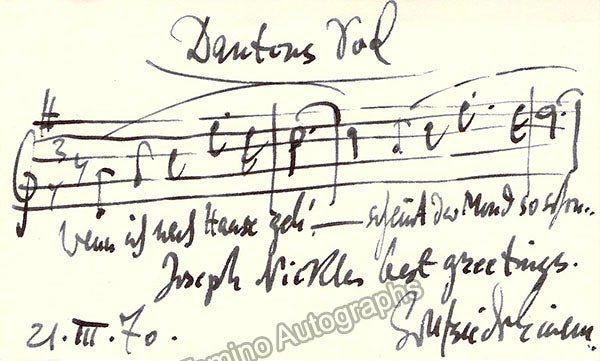 Dantons Tod
3/4
wenn ich nach Hause geh' — scheint der Mond so schön..
Joseph Nickles best greetings.
21.III.70.
Gottfried Einem
Tamino Autographs